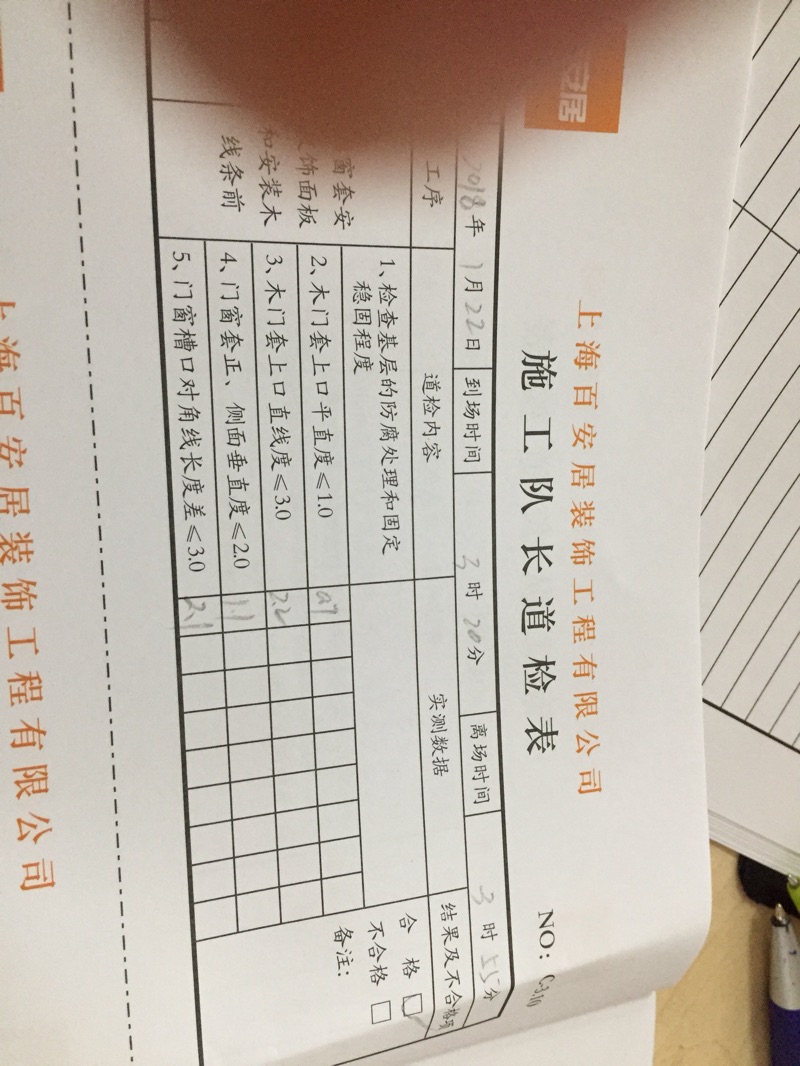 安居
上海百安居装饰工程有限公司
施工队长道检表
NO: C3.10
2018年 1月22日 到场时间 3时20分 离场时间 3时55分
工序 道检内容 实测数据 结果及不合格项
窗套安
饰面板
和安装木
线条前
1、检查基层的防腐处理和固定
稳固程度
2、木门套上口平直度≤1.0 0.7
3、木门套上口直线度≤3.0 2.2
4、门窗套正、侧面垂直度≤2.0 1.1
5、门窗槽口对角线长度差≤3.0 2.1
合格
不合格
备注:
上海百安居装饰工程有限公司